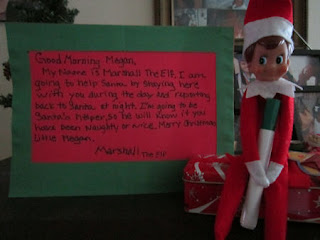 Good Morning Megan,
My Name is Marshall The Elf, I am
going to help Santa by staying here
with you during the day and reporting
back to Santa at night. I'm going to be
Santa's helper, so he will know if you
have been naughty or nice. Merry Christmas
Little Megan.
Marshall The Elf